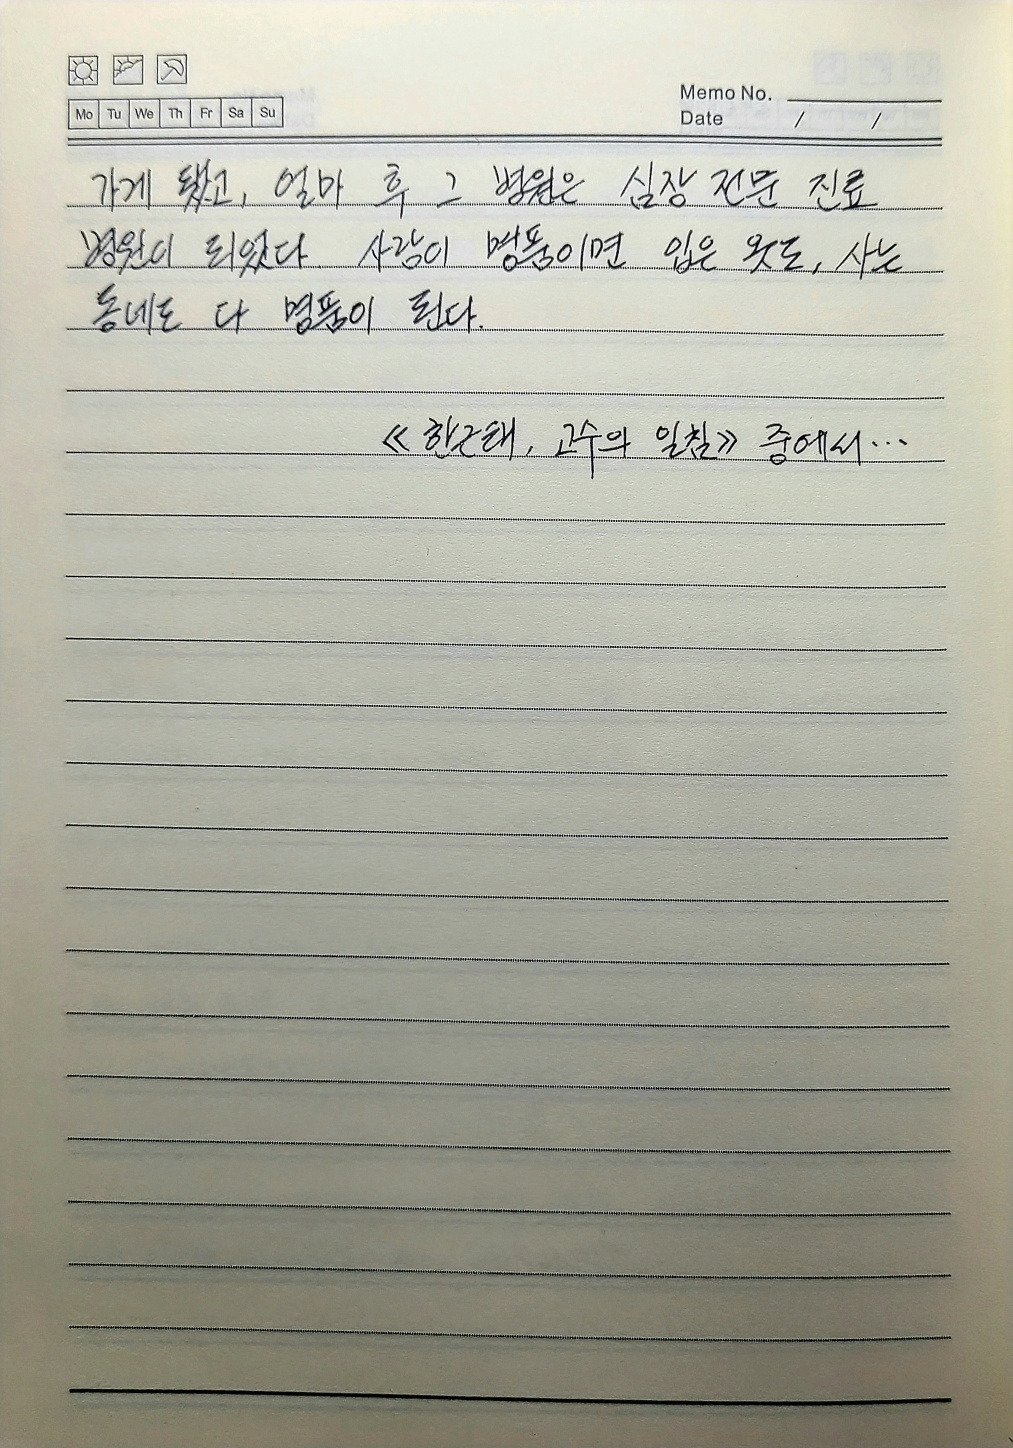 Mo Tu We Th Fr Sa Su
Memo No.
Date / /
가게 됐고, 얼마 후 그 병원은 심장 전문 진료
병원이 되었다. 사람이 명품이면 입은 옷도, 사는
동네도 다 명품이 된다.
《한근태, 고수의 일침》 중에서…